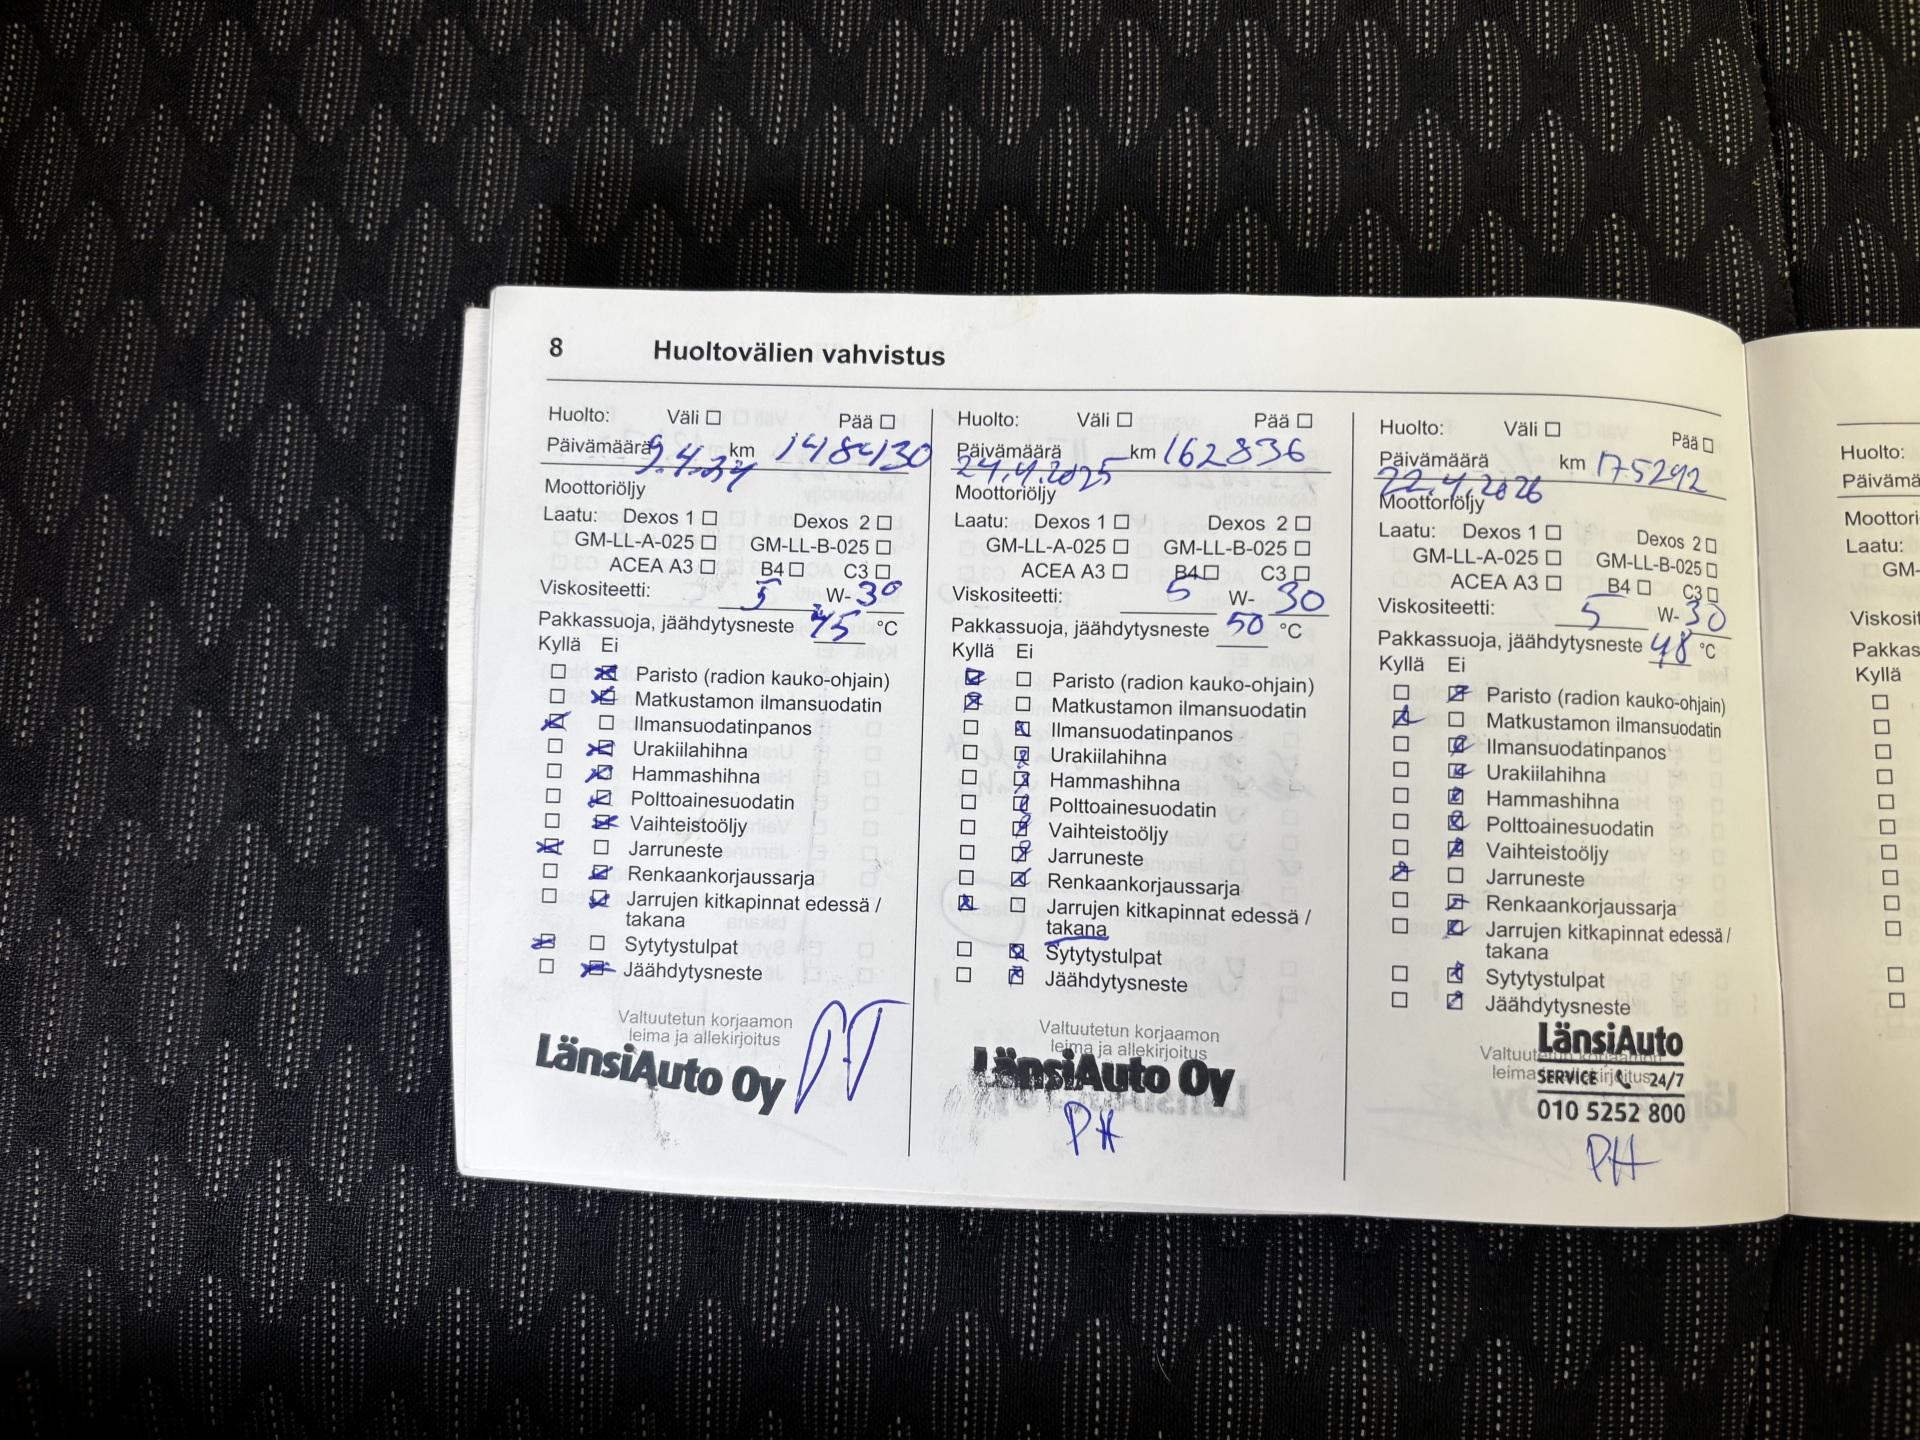 8 Huoltovälien vahvistus
Huolto: Väli Pää
Päivämäärä 9.4.24 km 148430
Moottoriöljy
Laatu: Dexos 1 Dexos 2
GM-LL-A-025 GM-LL-B-025
ACEA A3 B4 C3
Viskositeetti: 5 W-30
Pakkassuoja, jäähdytysneste 45 °C
Kyllä Ei
Paristo (radion kauko-ohjain)
Matkustamon ilmansuodatin
Ilmansuodatinpanos
Urakiilahihna
Hammashihna
Polttoainesuodatin
Vaihteistoöljy
Jarruneste
Renkaankorjaussarja
Jarrujen kitkapinnat edessä /
takana
Sytytystulpat
Jäähdytysneste
Valtuutetun korjaamon
leima ja allekirjoitus
LänsiAuto Oy
Huolto: Väli Pää
Päivämäärä 24.4.2025 km 162836
Moottoriöljy
Laatu: Dexos 1 Dexos 2
GM-LL-A-025 GM-LL-B-025
ACEA A3 B4 C3
Viskositeetti: 5 W- 30
Pakkassuoja, jäähdytysneste 50 °C
Kyllä Ei
Paristo (radion kauko-ohjain)
Matkustamon ilmansuodatin
Ilmansuodatinpanos
Urakiilahihna
Hammashihna
Polttoainesuodatin
Vaihteistoöljy
Jarruneste
Renkaankorjaussarja
Jarrujen kitkapinnat edessä /
takana
Sytytystulpat
Jäähdytysneste
Valtuutetun korjaamon
leima ja allekirjoitus
LänsiAuto Oy
PH
Huolto: Väli Pää
Päivämäärä 22.4.2026 km 175292
Moottoriöljy
Laatu: Dexos 1 Dexos 2
GM-LL-A-025 GM-LL-B-025
ACEA A3 B4 C3
Viskositeetti: 5 W-30
Pakkassuoja, jäähdytysneste 48 °C
Kyllä Ei
Paristo (radion kauko-ohjain)
Matkustamon ilmansuodatin
Ilmansuodatinpanos
Urakiilahihna
Hammashihna
Polttoainesuodatin
Vaihteistoöljy
Jarruneste
Renkaankorjaussarja
Jarrujen kitkapinnat edessä /
takana
Sytytystulpat
Jäähdytysneste
Valtuutetun korjaamon
leima ja allekirjoitus
LänsiAuto
SERVICE 24/7
010 5252 800
PH
Huolto:
Laatu:
GM-
Kyllä